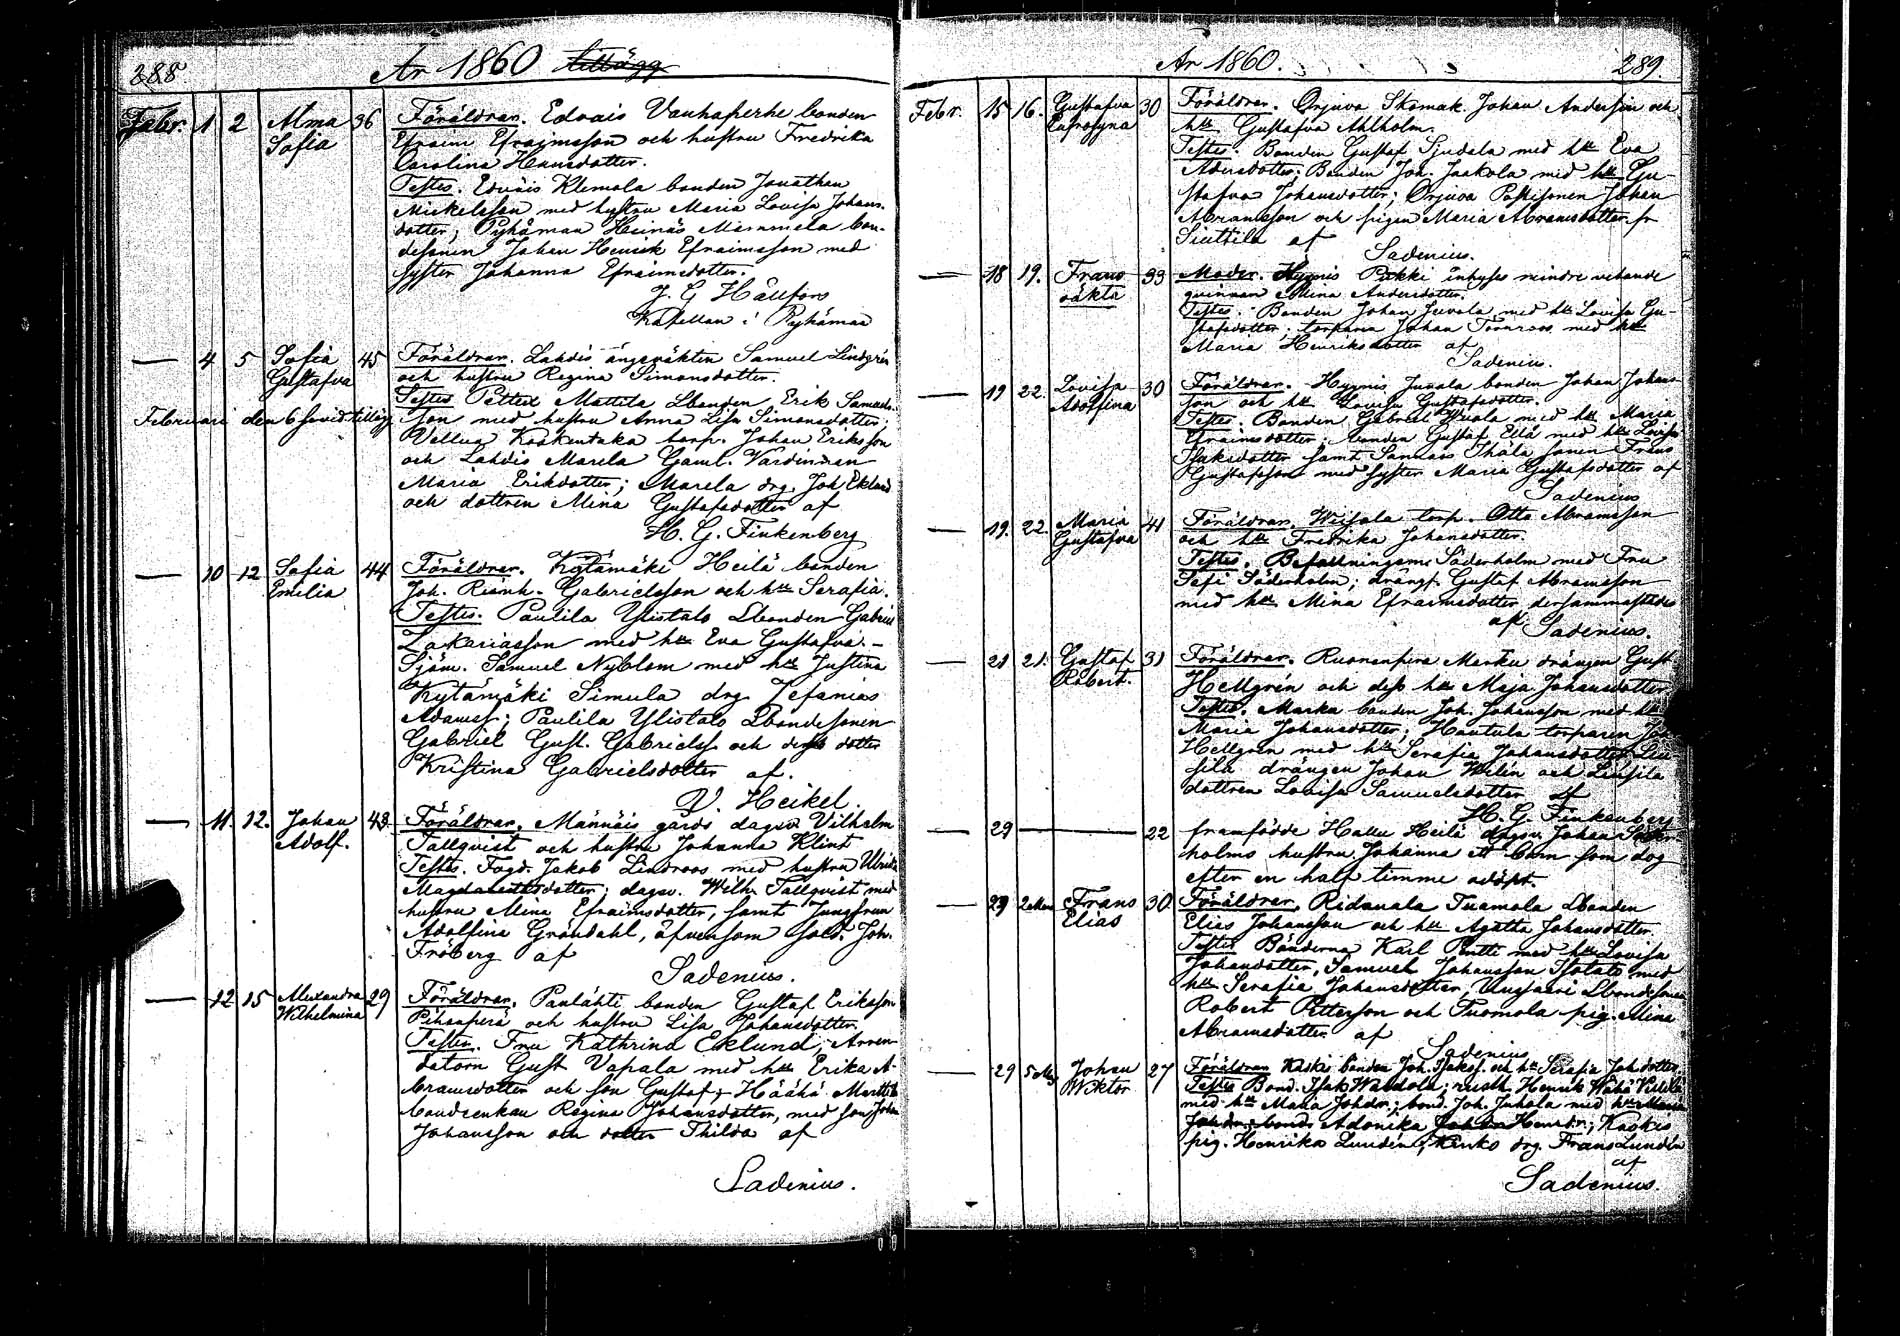 288 År 1860 tillägg
Febr. 1 2 Alma 36 Föräldrar. Edväis Vanhaperhe bonden
Sofia Efraim Efraimsson och hustru Fredrika
Carolina Hansdotter.
Testes. Edväis Klemola bonden Jonathan
Mickelsson med hustru Maria Lovisa Johans-
dotter, Pyhämaa Heinäs Mammela bon-
desonen Johan Henrik Efraimsson med
syster Johanna Efraimsdotter.
J. G. Hällfors
Kapellan i Pyhämaa
— 4 5 Sofia 45 Föräldrar. Lahdis ängsväkten Samuel Lindgrén
Gustafva och hustru Regina Simonsdotter.
Testes Mattila Lbonden Erik Samuels-
Februari den 6 tillägg son med hustru Anna Lisa Simonsdotter;
Vellua Koskentaka torp. Johan Eriksson
och Lahdis Marela Gaml. Värdinnan
Maria Eriksdotter; Marela drg. Joh. Eklund
och dottren Mina Gustafsdotter af
H. G. Finkenberg
— 10 12 Sofia 44 Föräldrar. Kytämäki Heilä bonden
Emilia Joh. Reinh. Gabrielsson och h:u Serafia.
Testes. Paulila Ylistalo Lbonden Gabriel
Zakariasson med h:u Eva Gustafva. —
Sjöm. Samuel Nyblom med h:u Justina
Kytämäki Simula drg Zefanias
Adamss; Paulila Ylistalo Lbondesonen
Gabriel Gust. Gabrielss och dess dotter
Kristina Gabrielsdotter af.
V. Heikel.
— 11. 12. Johan 43 Föräldrar. Männäis gårds dagsv Vilhelm
Adolf. Tallqvist och hustru Johanna Klint
Testes. Fogd. Jakob Lindroos med hustru Ulrika
Magdalenasdotter; dagsv. Wilh. Tallqvist med
hustru Mina Efraimsdotter, samt Jungfrun
Adolfina Gröndahl, äfvensom sold. Joh.
Fröberg af
Sadenius.
— 12 15 Alexandra 29 Föräldrar. Pantähti bonden Gustaf Eriksson
Wilhelmina Pihanperä och hustru Lisa Johansdotter.
Testes. Fru Kathrina Eklund, Arren-
datorn Gust Vapala med h:u Erika A-
bramsdotter och son Gustaf; Häähä Marttila
bondeenkan Regina Johansdotter, med son Johan
Johansson och dotter Thilda af
Sadenius.
År 1860. 289.
Febr. 15 16. Gustafva 30 Föräldrar. Orjuva Skomak. Johan Andersin och
Eufrosyna h:u Gustafva Ahlholm.
Testes. Bonden Gustaf Sjudala med h:u Eva
Adersdotter; Bonden Joh. Jaakola med h:u Gu-
stafva Johansdotter; Orjuva Johan
Abramsson och pigan Maria Abramsdotter fr
af
Sadenius.
— 18 19. Frans 33 Moder. Hygnis Pukki inhyses mindre vetande
oäkta qvinnan Mina Andersdotter.
Testes. Bonden Johan Juvala med h:u Lovisa Gu-
stafsdotter. torparen Johan Törnroos med h:u
Maria Henriksdotter af
Sadenius.
— 19 22. Lovisa 30 Föräldrar. Hygnis Juvala bonden Johan Johans-
Adolfina son och h:u Lovisa Gustafsdotter.
Testes. Bonden Gabriel med h:u Maria
Efraimsdotter, bonden Gustaf Ellä med h:u Lovisa
Isaksdotter samt sonen Frans
Gustafsson med syster Maria Gustafsdotter af
Sadenius
— 19. 22. Maria 41 Föräldrar. torp. Otto Abramsson
Gustafva och h:u Fredrika Johansdotter.
Testes. Befallningsm Söderholm med Fru
Sefi Söderholm; drängs. Gustaf Abramsson
med h:u Mina Efraimsdotter dersammastädes
af. Sadenius.
— 21 21. Gustaf 31 Föräldrar. Ruonanperä Marku drängen Gust
Robert. Hellgrén och dess h:u Maja Johansdotter
Testes. Marku bonden Joh. Johansson med h:u
Maria Johansdotter; Hautula torparen
Hellgrén med h:u Serafia Johansdotter;
drängen Johan Welin och
dottren Lovisa Samuelsdotter af
H. G. Finkenberg
— 29 — 22 framfödde Hallu Heilä dagsv Johan Söder-
holms hustru Johanna ett barn som dog
efter en half timme odöpt.
— 29 2 Mars Frans 30 Föräldrar. Ridavala Tuomola Lbonden
Elias Elias Johansson och h:u Agatha Johansdotter.
Testes Bönderna Karl Pentti med h:u Lovisa
Johansdotter, Samuel Johansson Isotalo med
h:u Serafia Johansdotter; Lbondesonen
Robert Petterson och Tuomola pig. Mina
Abramsdotter af
Sadenius
— 29 5 Mrs Johan 27 Föräldrar Kaskis bonden Joh. Isakss. och h:u Serafia Joh dotter.
Wiktor Testes Bond. Isak; rusth. Henrik
med h:u Maria Johdr.; bond. Joh. Juhola med h:u Maria
Adonika Henrdr.; Kaskis
pig. Henrika Lundén; drg. Frans Lundén
af
Sadenius.